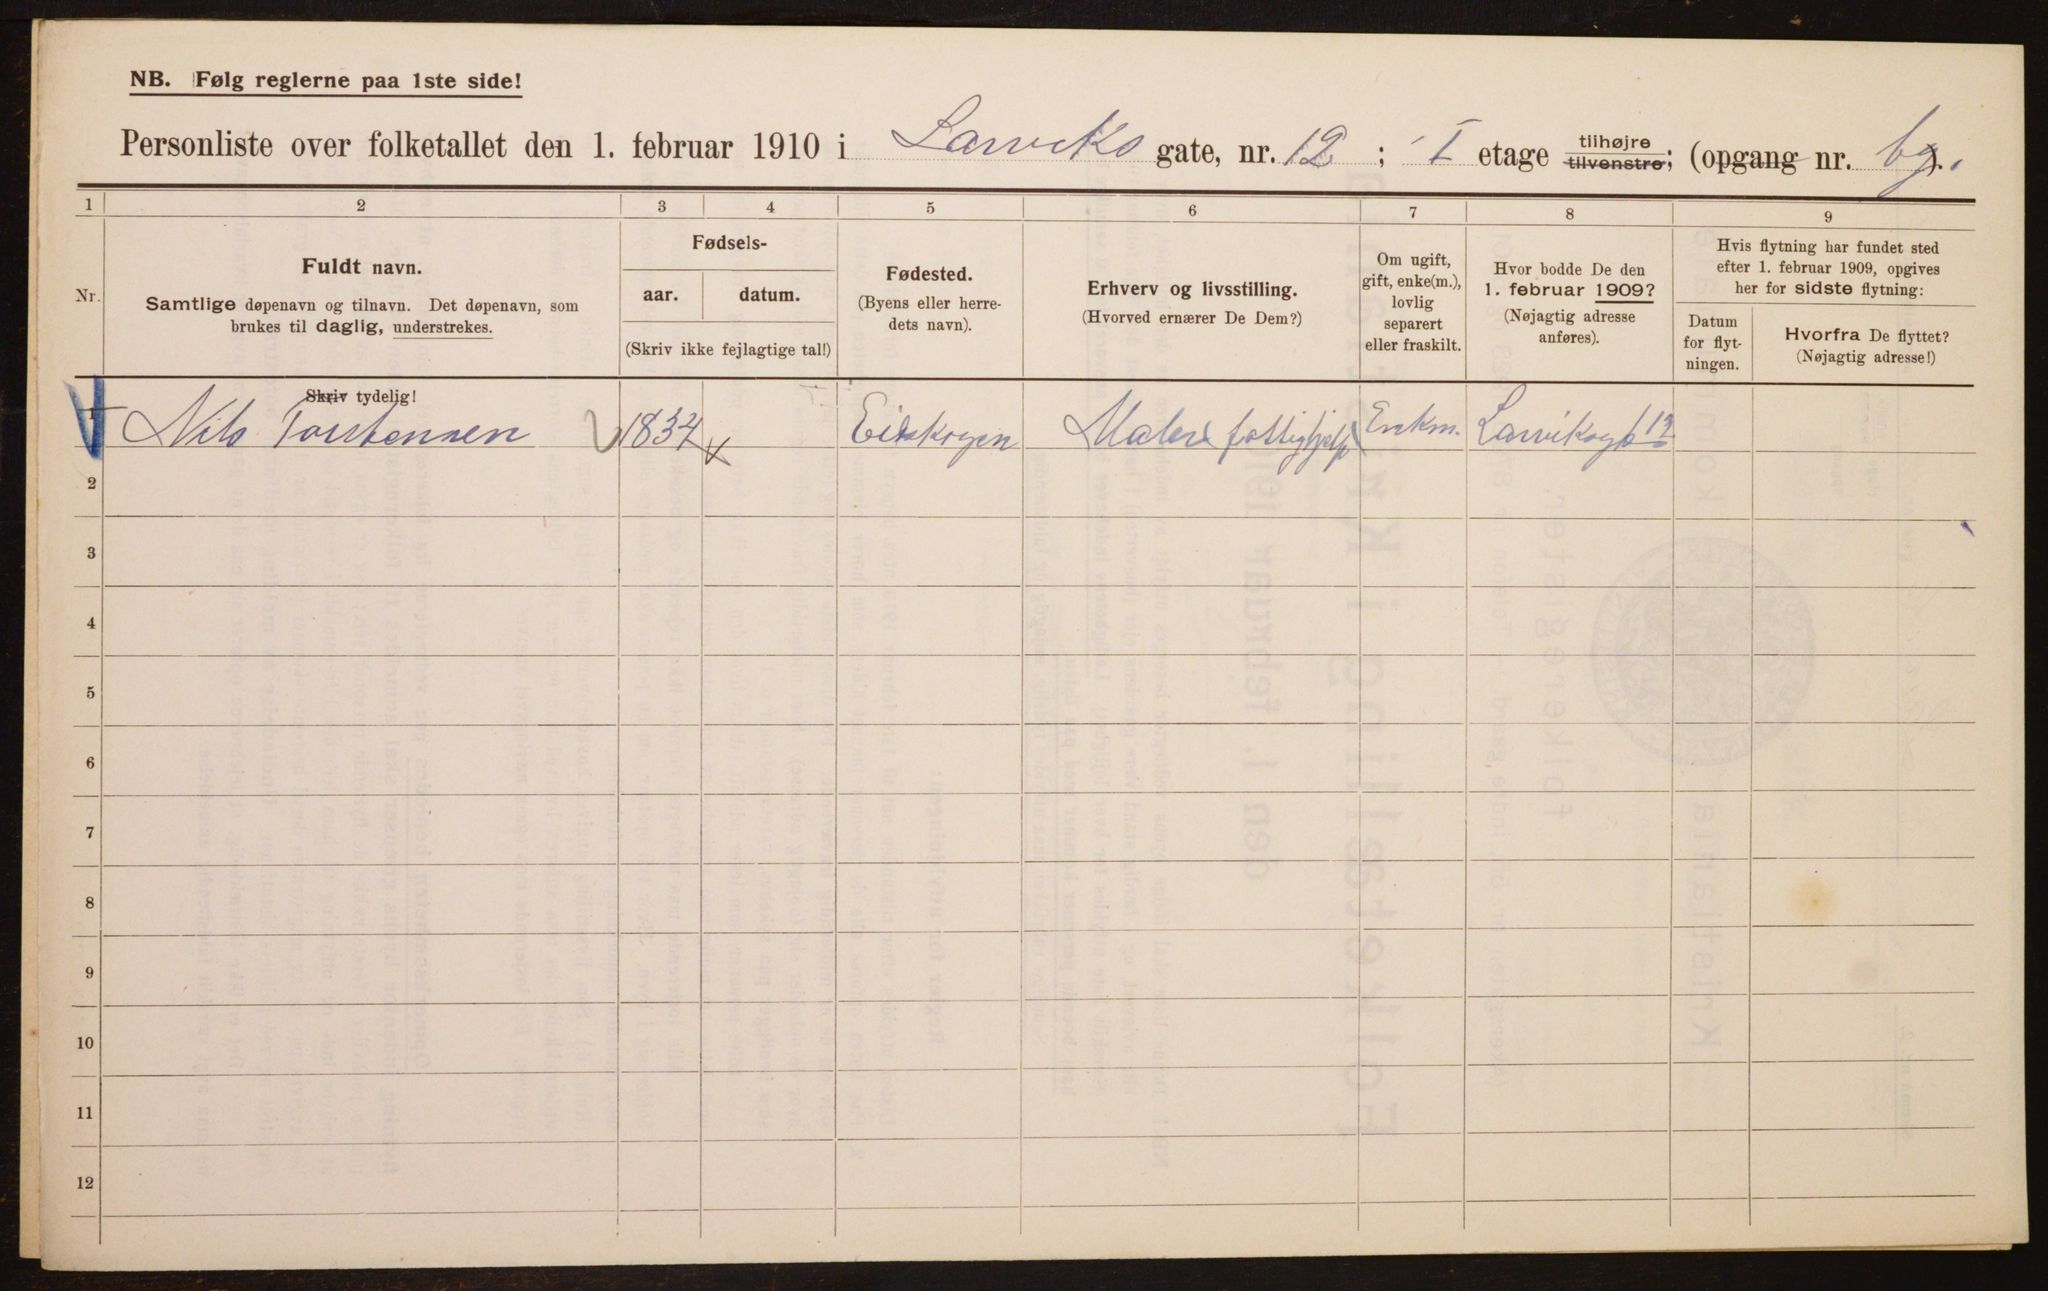 NB. Følg reglerne paa 1ste side!
Personliste over folketallet den 1. februar 1910 i Larviks gate, nr. 12 ; I etage tilhøjre tilvenstre; (opgang nr. bg.).
1 2 3 4 5 6 7 8 9
Nr.
Fuldt navn.
Samtlige døpenavn og tilnavn. Det døpenavn, som
brukes til daglig, understrekes.
Fødsels-
aar. datum.
(Skriv ikke fejlagtige tal!)
Fødested.
(Byens eller herre-
dets navn).
Erhverv og livsstilling.
(Hvorved ernærer De Dem?)
Om ugift,
gift, enke(m.),
lovlig
separert
eller fraskilt.
Hvor bodde De den
1. februar 1909?
(Nøjagtig adresse
anføres).
Hvis flytning har fundet sted
efter 1. februar 1909, opgives
her for sidste flytning:
Datum
for flyt-
ningen.
Hvorfra De flyttet?
(Nøjagtig adresse!)
Skriv tydelig!
1 Nils Torstensen 1834 Eidskogen Maler fattighjelp Enkm. Larviksgt 12
2
3
4
5
6
7
8
9
10
11
12